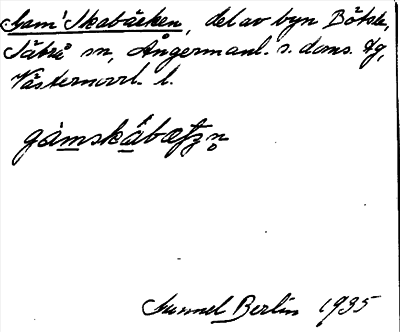 Gam'Skabäcken, del av byn Bölesta,
Sätrå sn, Ångermanl. s. doms. dg,
Västernorrl. l.
gàmskábæʈʂn̥
Gunnel Berlin 1935